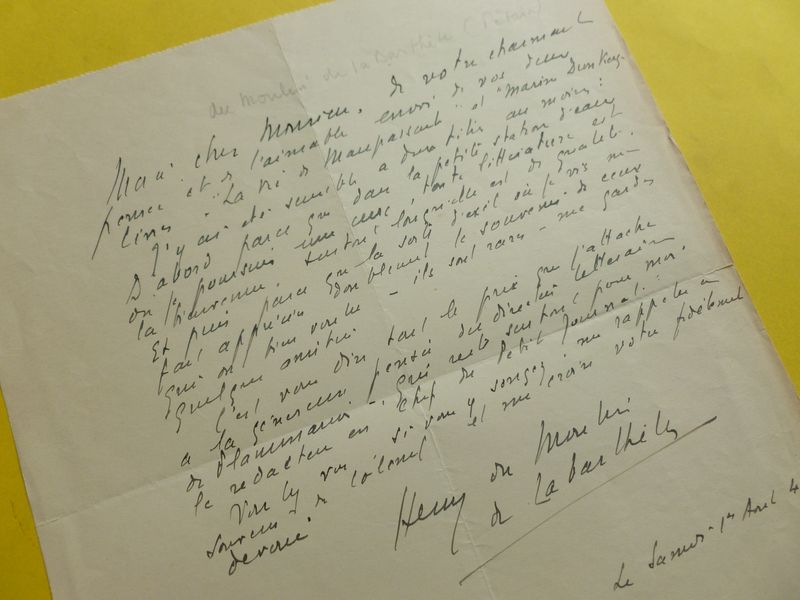 du Moulin de la Barthète (Pétain)
Merci cher Monsieur, de votre charmante
pensée et de l'aimable envoi de vos deux
livres "La Vie de Maupassant" et "Marin Dunkerq
J'y ai été sensible à deux titres au moins :
D'abord parce que dans la petite station d'eau
où je poursuis une cure, toute littérature est
la bienvenue, surtout lorsqu'elle est de qualité.
Et puis parce que la sorte d'exil où je vis me
fait apprécier doublement le souvenir de ceux
qui ont bien voulu - ils sont rares - me garder
quelque amitié
C'est vous dire tout le prix que j'attache
à la généreuse pensée du directeur littéraire
de Flammarion - qui reste surtout pour moi
le rédacteur en chef du Petit Journal.
Veuillez, si vous y songez, me rappeler au
souvenir du Colonel et me croire votre fidèlement
dévoué
Henry du Moulin
de Labarthète
Le Samedi 1er Avril 4